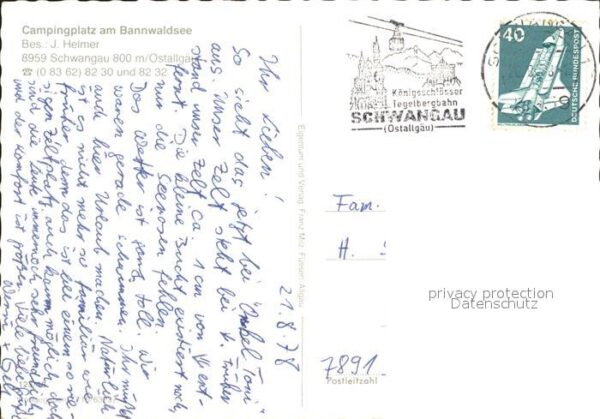 Campingplatz am Bannwaldsee
Bes.: J. Helmer
8959 Schwangau 800 m/Ostallgäu
☎ (0 83 62) 82 30 und 82 32
Ihr Lieben!
So sieht das jetzt bei "Onkel Toni"
aus. Unser Zelt steht bei k. Früher
stand unser Zelt ca 1 cm von ent-
fernt. Die kleine Bucht existiert noch,
nur die Seerosen fehlen.
Das Wetter ist ganz toll. Wir
waren gerade schwimmen. Ihr müßt
hier Urlaub machen. Natürlich
ist es nicht mehr so familiär wie
früher, denn das ist bei einem so rie-
sigen Zeltplatz auch kaum möglich, doch
sind die Leute immernoch sehr freundlich
und der Komfort ist größer. Viele liebe Grüße
21.8.78
Eigentum und Verlag Franz Milz, Füssen, Allgäu
Königsschlösser
Tegelbergbahn
SCHWANGAU
(Ostallgäu)
40
DEUTSCHE BUNDESPOST
Fam.
H.
7891
Postleitzahl
privacy protection
Datenschutz